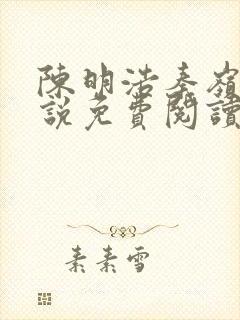 陳明浩秦嶺
說免費閱讀
素素雪